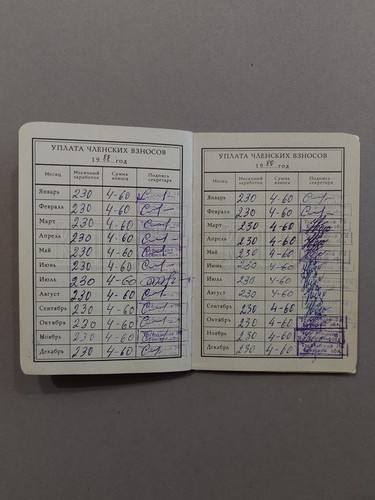 УПЛАТА ЧЛЕНСКИХ ВЗНОСОВ
19 год
Месяц Месячный заработок Сумма взноса Подпись секретаря
Январь 230 4-60
Февраль 230 4-60
Март 230 4-60
Апрель 230 4-60
Май 230 4-60
Июнь 230 4-60
Июль 230 4-60
Август 230 4-60
Сентябрь 230 4-60
Октябрь 230 4-60
Ноябрь 230 4-60
Декабрь 230 4-60
УПЛАТА ЧЛЕНСКИХ ВЗНОСОВ
19 год
Месяц Месячный заработок Сумма взноса Подпись секретаря
Январь 230 4-60
Февраль 230 4-60
Март 230 4-60
Апрель 230 4-60
Май 230 4-60
Июнь 230 4-60
Июль 230 4-60
Август 230 4-60
Сентябрь 230 4-60
Октябрь 230 4-60
Ноябрь 230 4-60
Декабрь 230 4-60